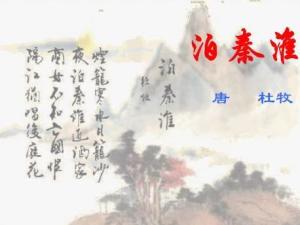 泊秦淮
唐 杜牧
泊秦淮
杜牧
煙籠寒水月籠沙
夜泊秦淮近酒家
商女不知亡國恨
隔江猶唱後庭花